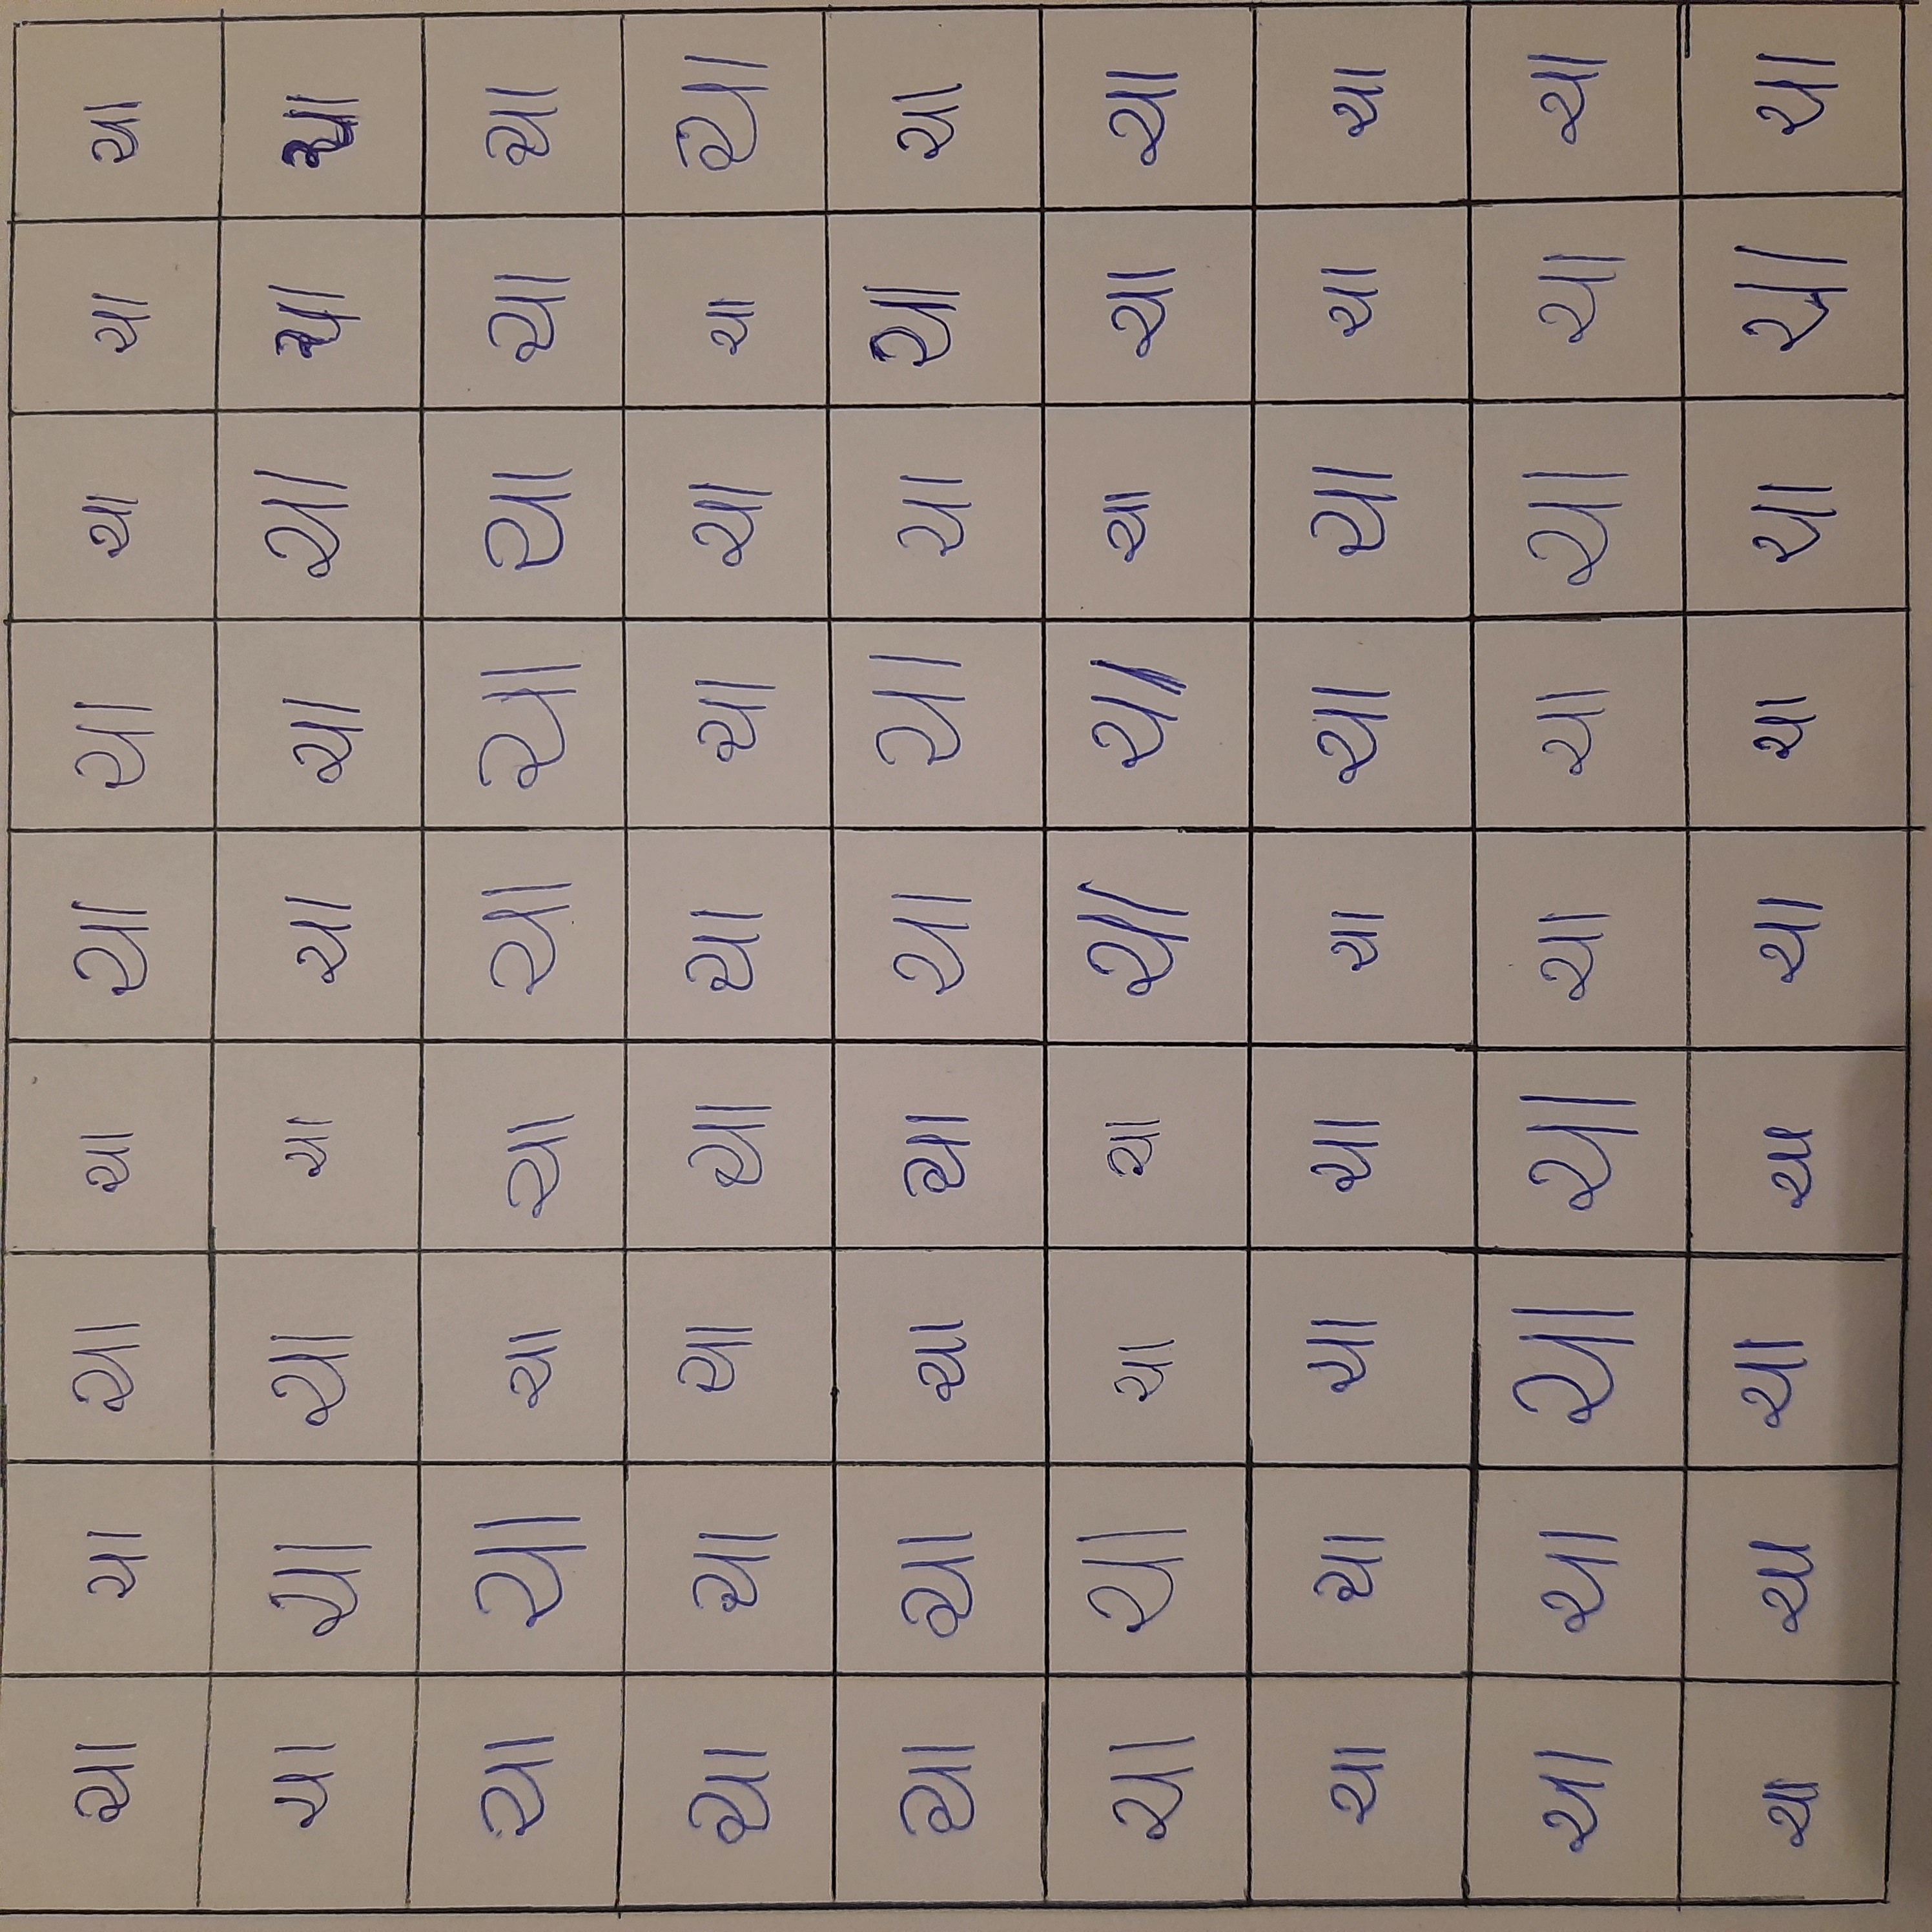 ચા ચા ચા ચા ચા ચા ચા ચા ચા
ચા ચા ચા ચા ચા ચા ચા ચા ચા
ચા ચા ચા ચા ચા ચા ચા ચા ચા
ચા ચા ચા ચા ચા ચા ચા ચા ચા
ચા ચા ચા ચા ચા ચા ચા ચા ચા
ચા ચા ચા ચા ચા ચા ચા ચા ચા
ચા ચા ચા ચા ચા ચા ચા ચા ચા
ચા ચા ચા ચા ચા ચા ચા ચા ચા
ચા ચા ચા ચા ચા ચા ચા ચા ચા